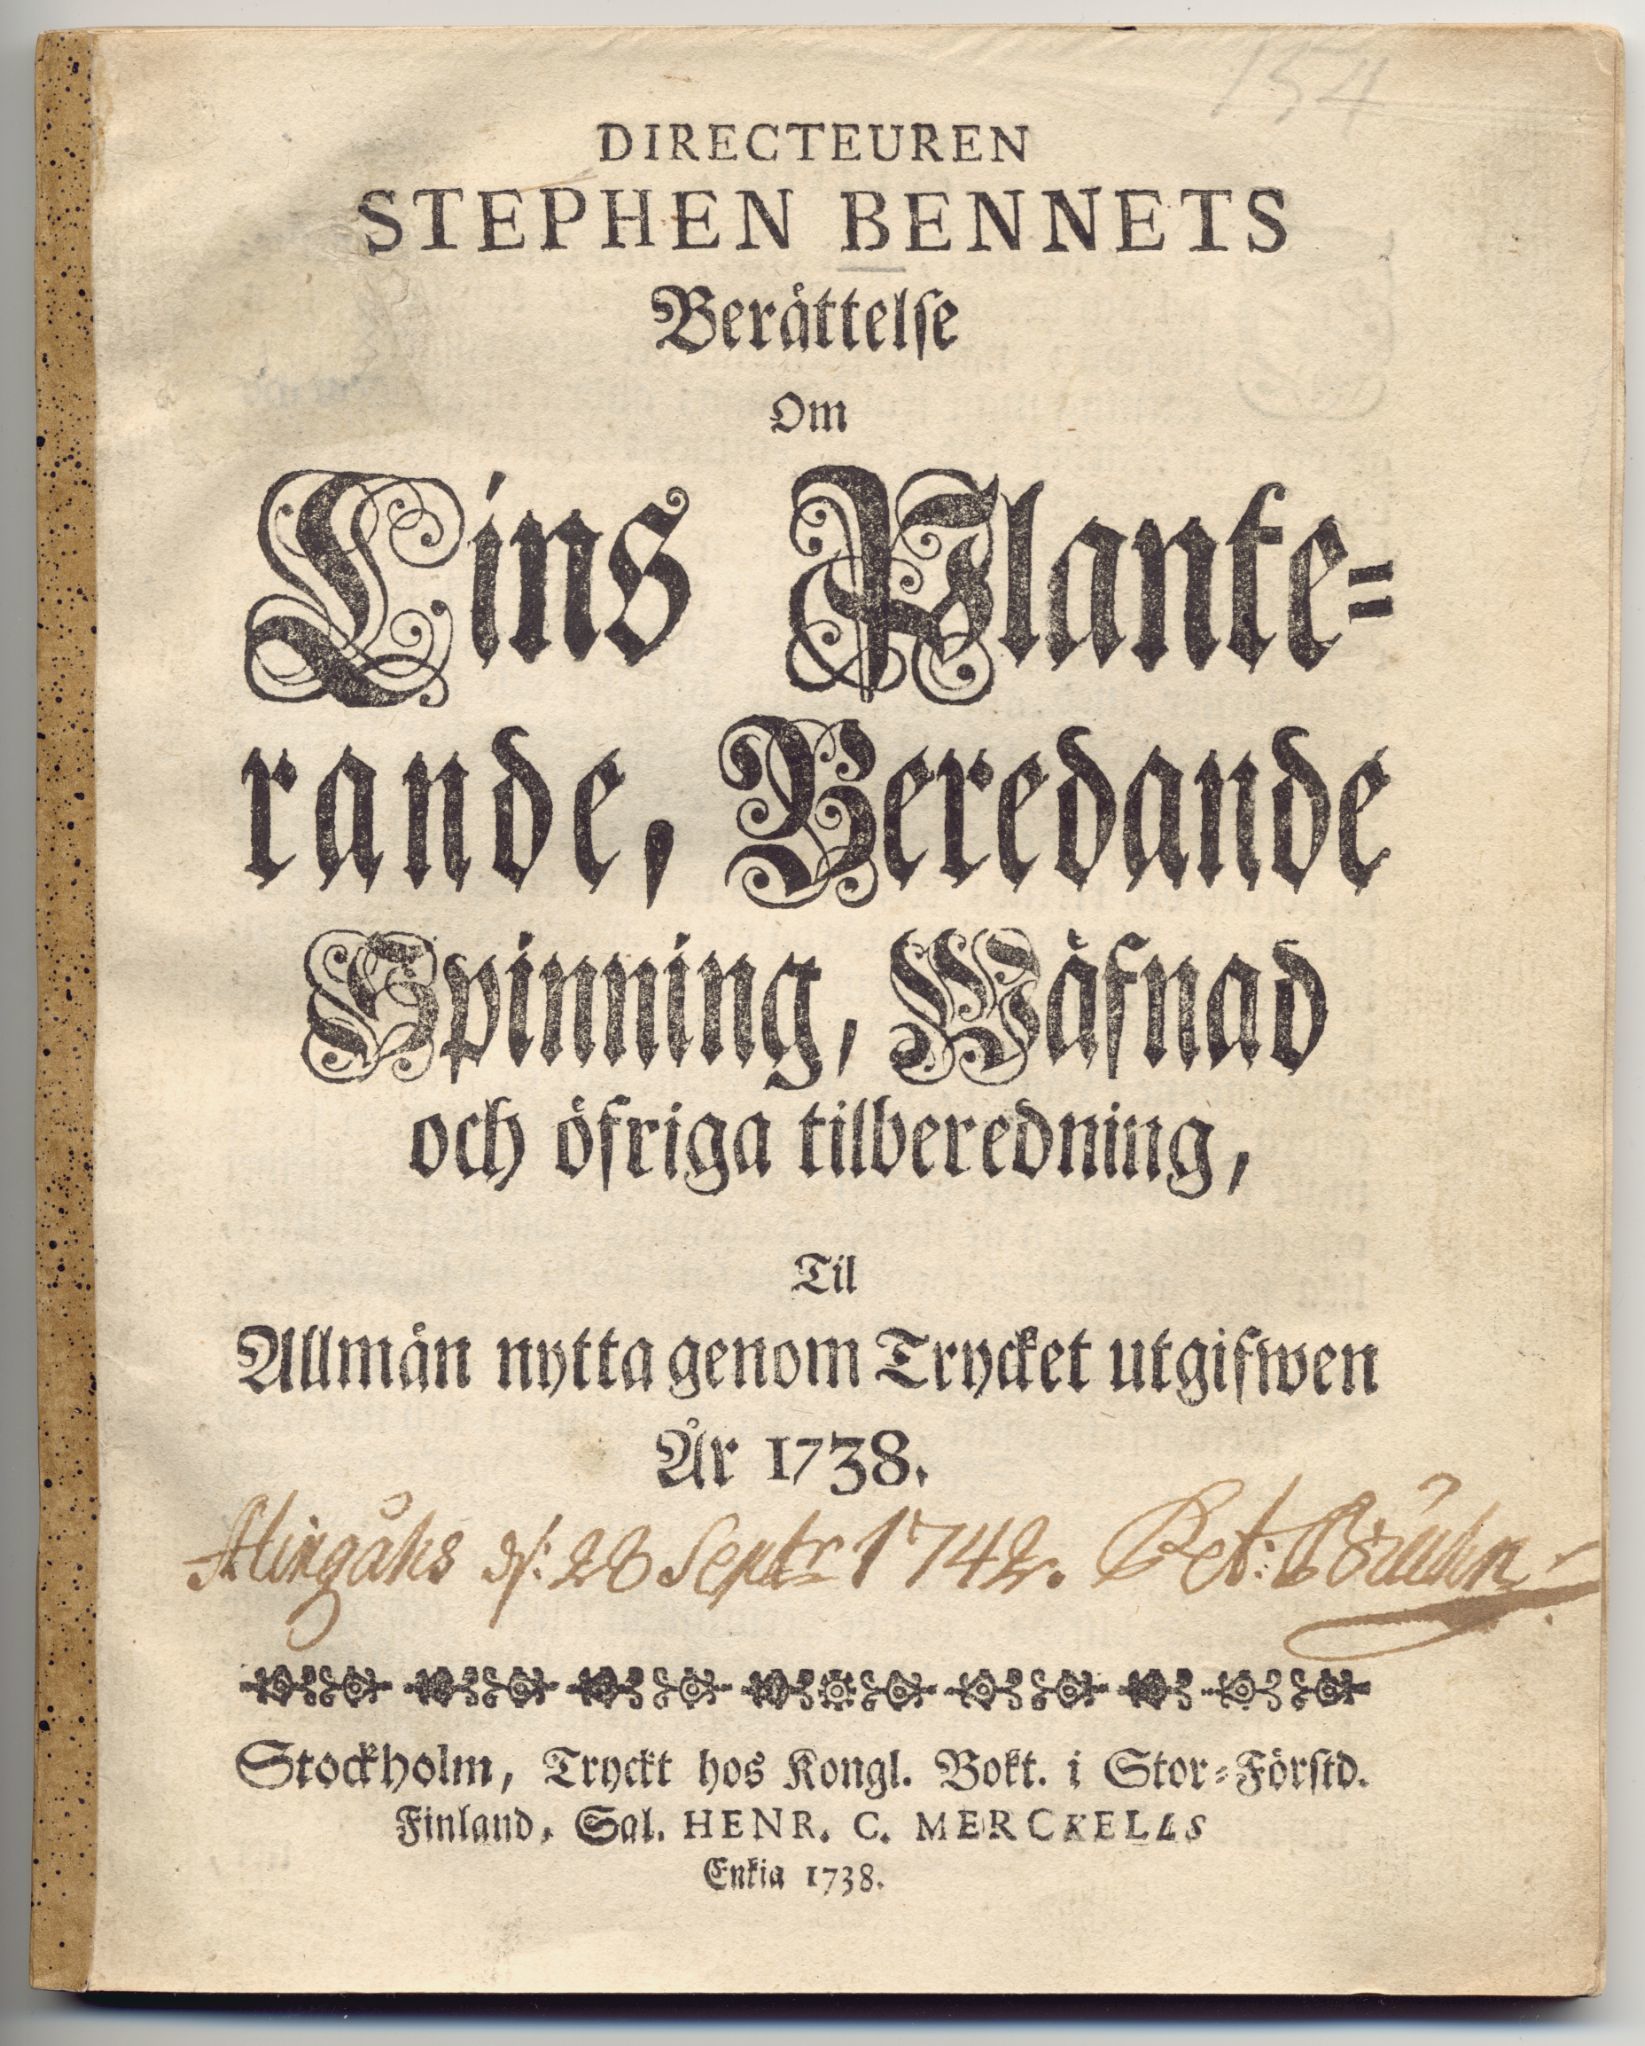 154
DIRECTEUREN
STEPHEN BENNETS
Berättelse
Om
Lins Plante-
rande, Beredande
Spinning, Wäfnad
och öfriga tilberedning,
Til
Allmän nytta genom Trycket utgifwen
År 1738.
Alingsåhs d: 28 Septr 1742.
Stockholm, Tryckt hos Kongl. Bokt. i Stor-Förstd.
Finland, Sal. HENR. C. MERCKELLS
Enkia 1738.